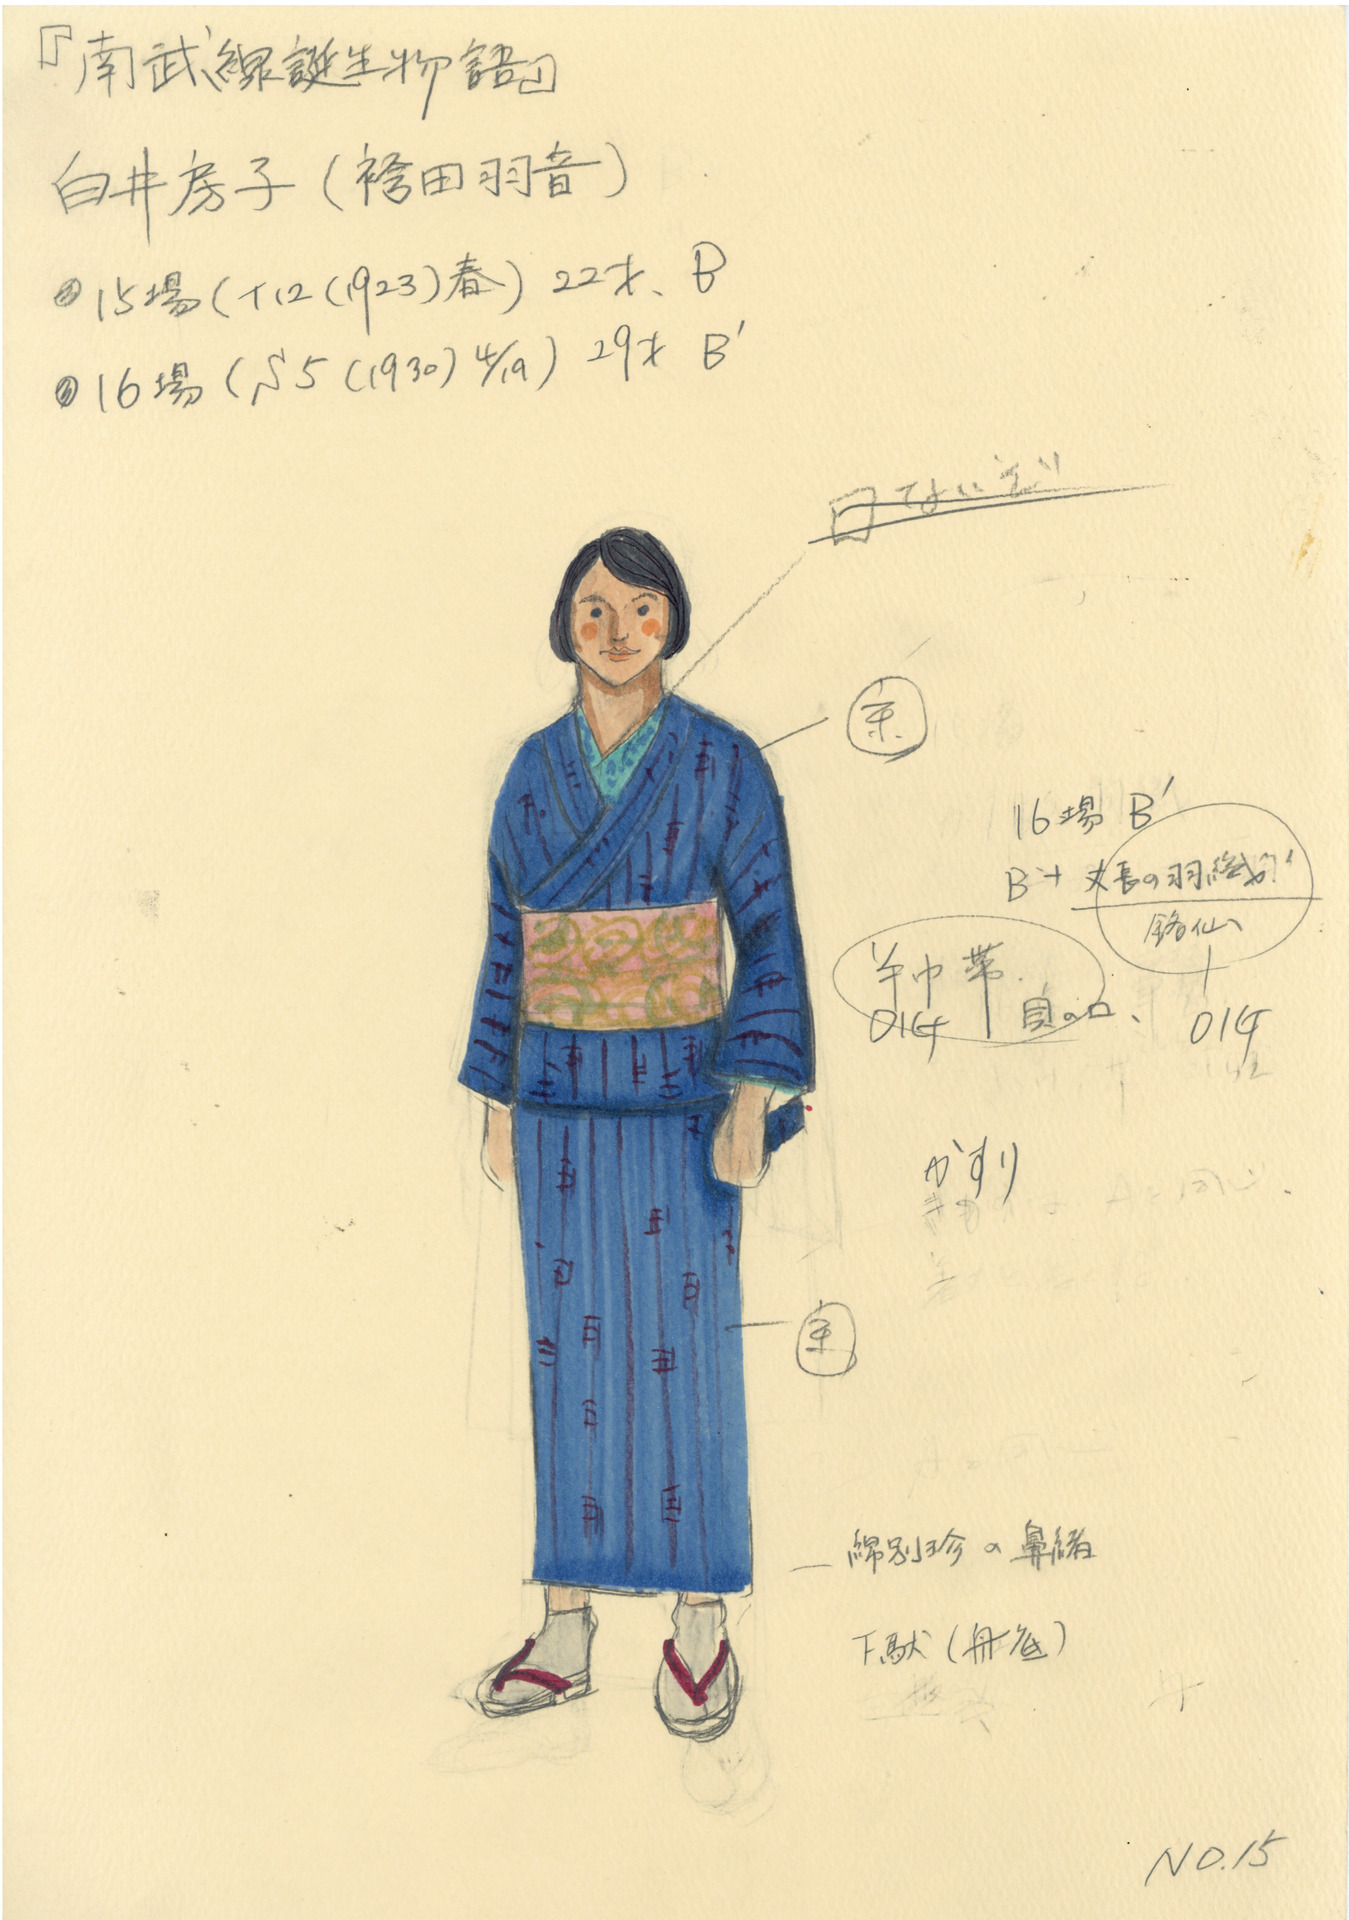 『南武線誕生物語』
白井房子(袴田羽音)
15場(T12(1923)春) 22才、B
16場(S5(1930)4/19) 29才 B'
16場 B'
B+丈長の羽織
銘仙
014
半巾帯
014 貝の口、
かすり
綿別珍の鼻緒
下駄(舟底)
NO.15